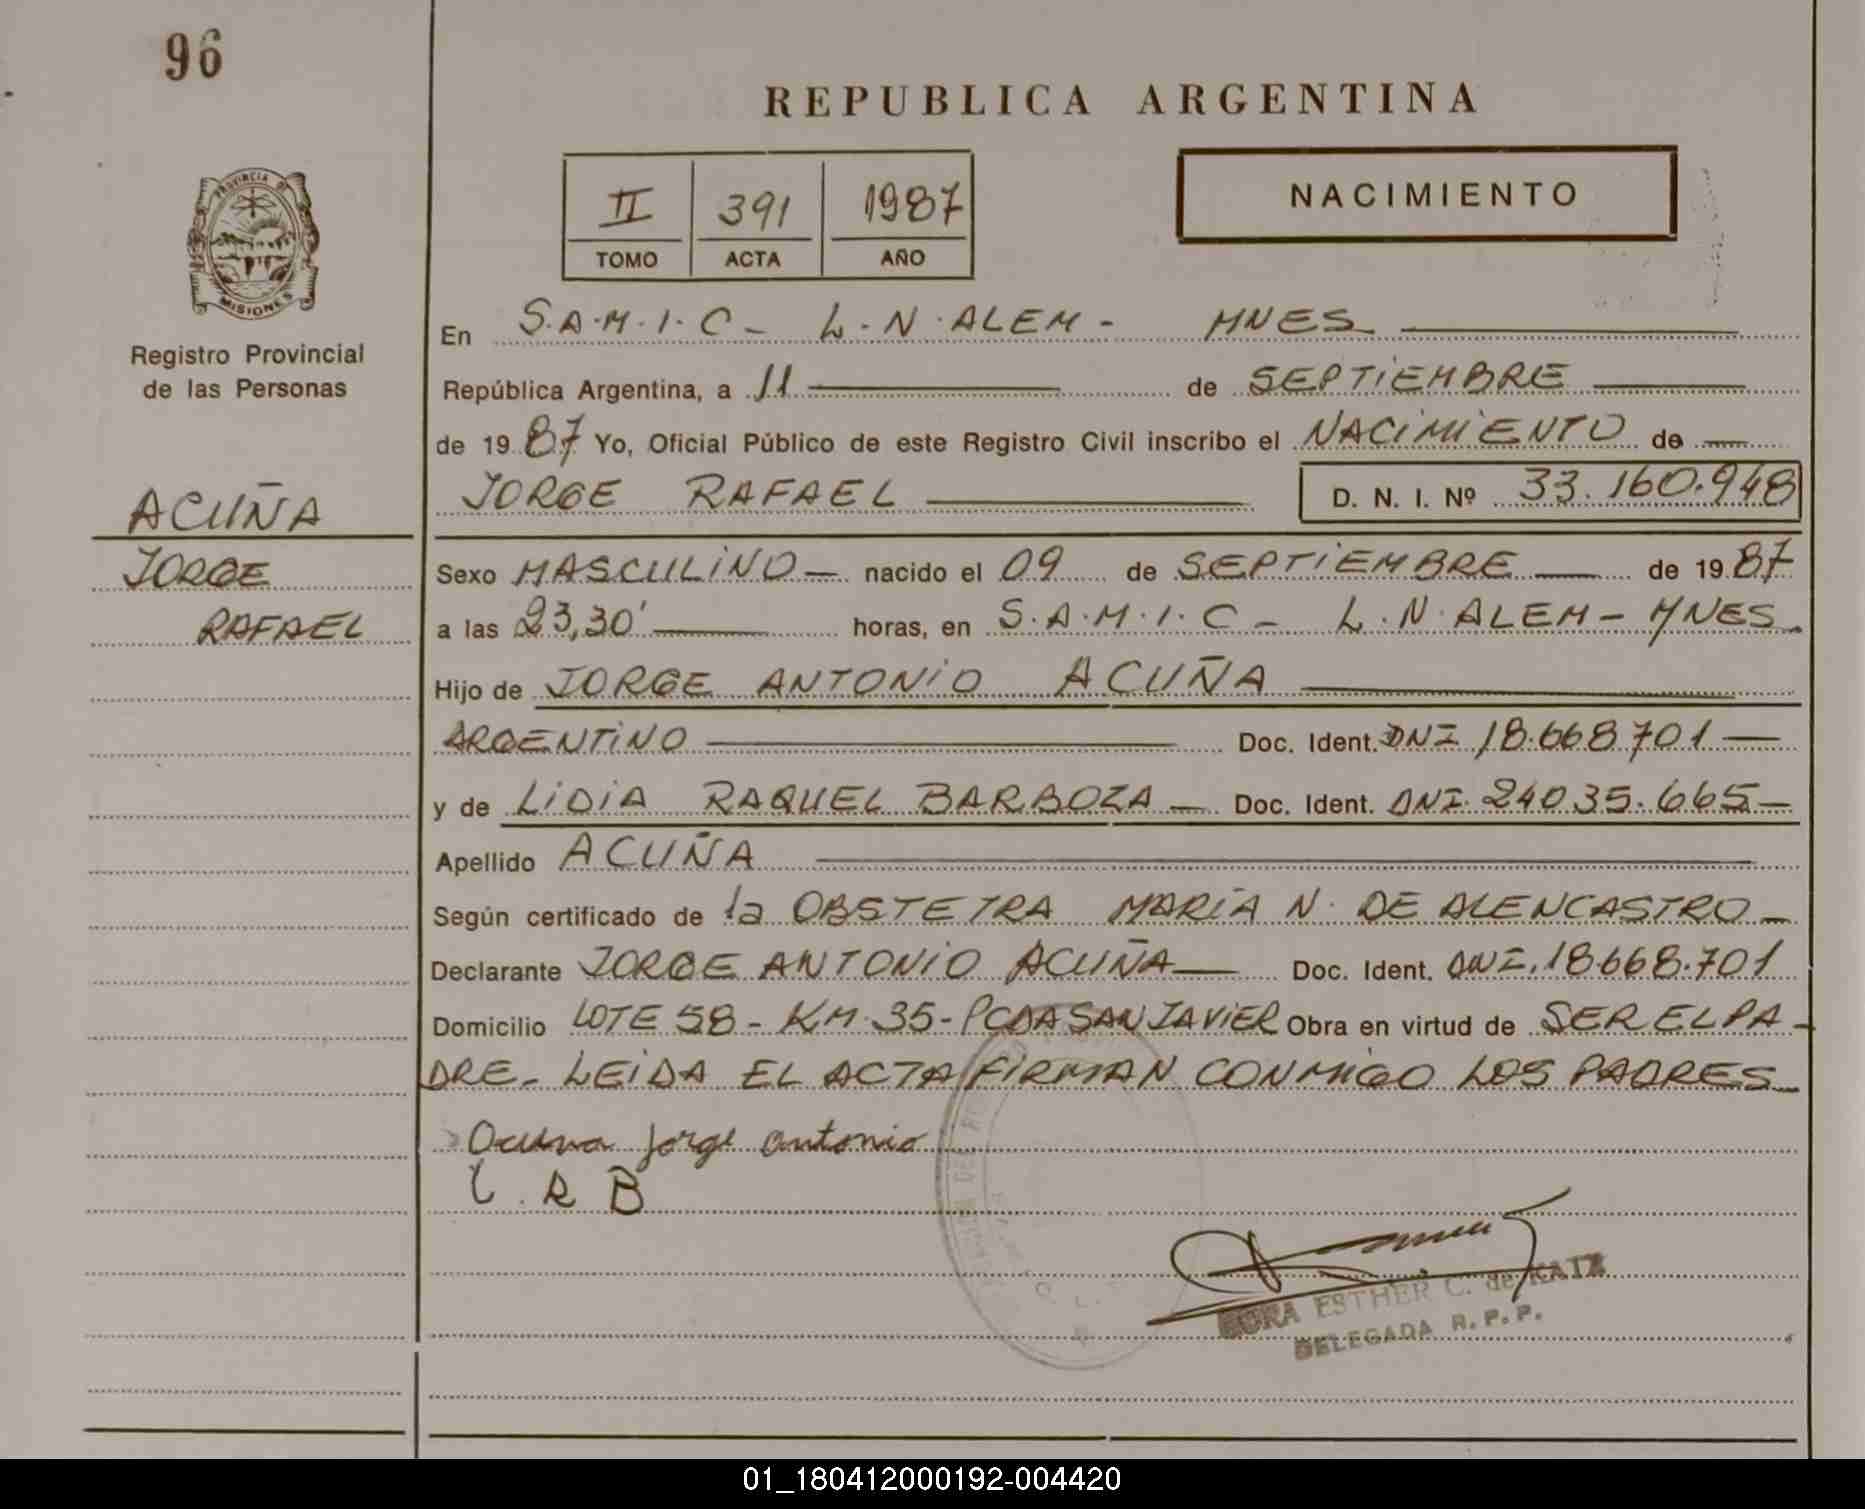 96
REPUBLICA ARGENTINA
PROVINCIA DE
MISIONES
Registro Provincial
de las Personas
II 391 1987
TOMO ACTA AÑO
NACIMIENTO
En S.A.M.I.C - L.N. ALEM - MNES
República Argentina, a 11 de SEPTIEMBRE
de 19 87 Yo, Oficial Público de este Registro Civil inscribo el NACIMIENTO de
JORGE RAFAEL D. N. I. Nº 33.160.948
ACUÑA
JORGE
RAFAEL
Sexo MASCULINO - nacido el 09 de SEPTIEMBRE de 19 87
a las 23,30' horas, en S.A.M.I.C - L.N. ALEM - MNES
Hijo de JORGE ANTONIO ACUÑA
ARGENTINO Doc. Ident. DNI 18.668.701 -
y de LIDIA RAQUEL BARBOZA - Doc. Ident. DNI. 24035.665 -
Apellido ACUÑA
Según certificado de la OBSTETRA MARIA N. DE ALENCASTRO -
Declarante JORGE ANTONIO ACUÑA - Doc. Ident. DNI. 18.668.701
Domicilio LOTE 58 - KM. 35 - PCDA SAN JAVIER Obra en virtud de SER EL PA-
DRE - LEIDA EL ACTA FIRMAN CONMIGO LOS PADRES
Acuna Jorge antonio
L. R B
ESTHER C. de KATZ
DELEGADA R.P.P.
01_180412000192-004420